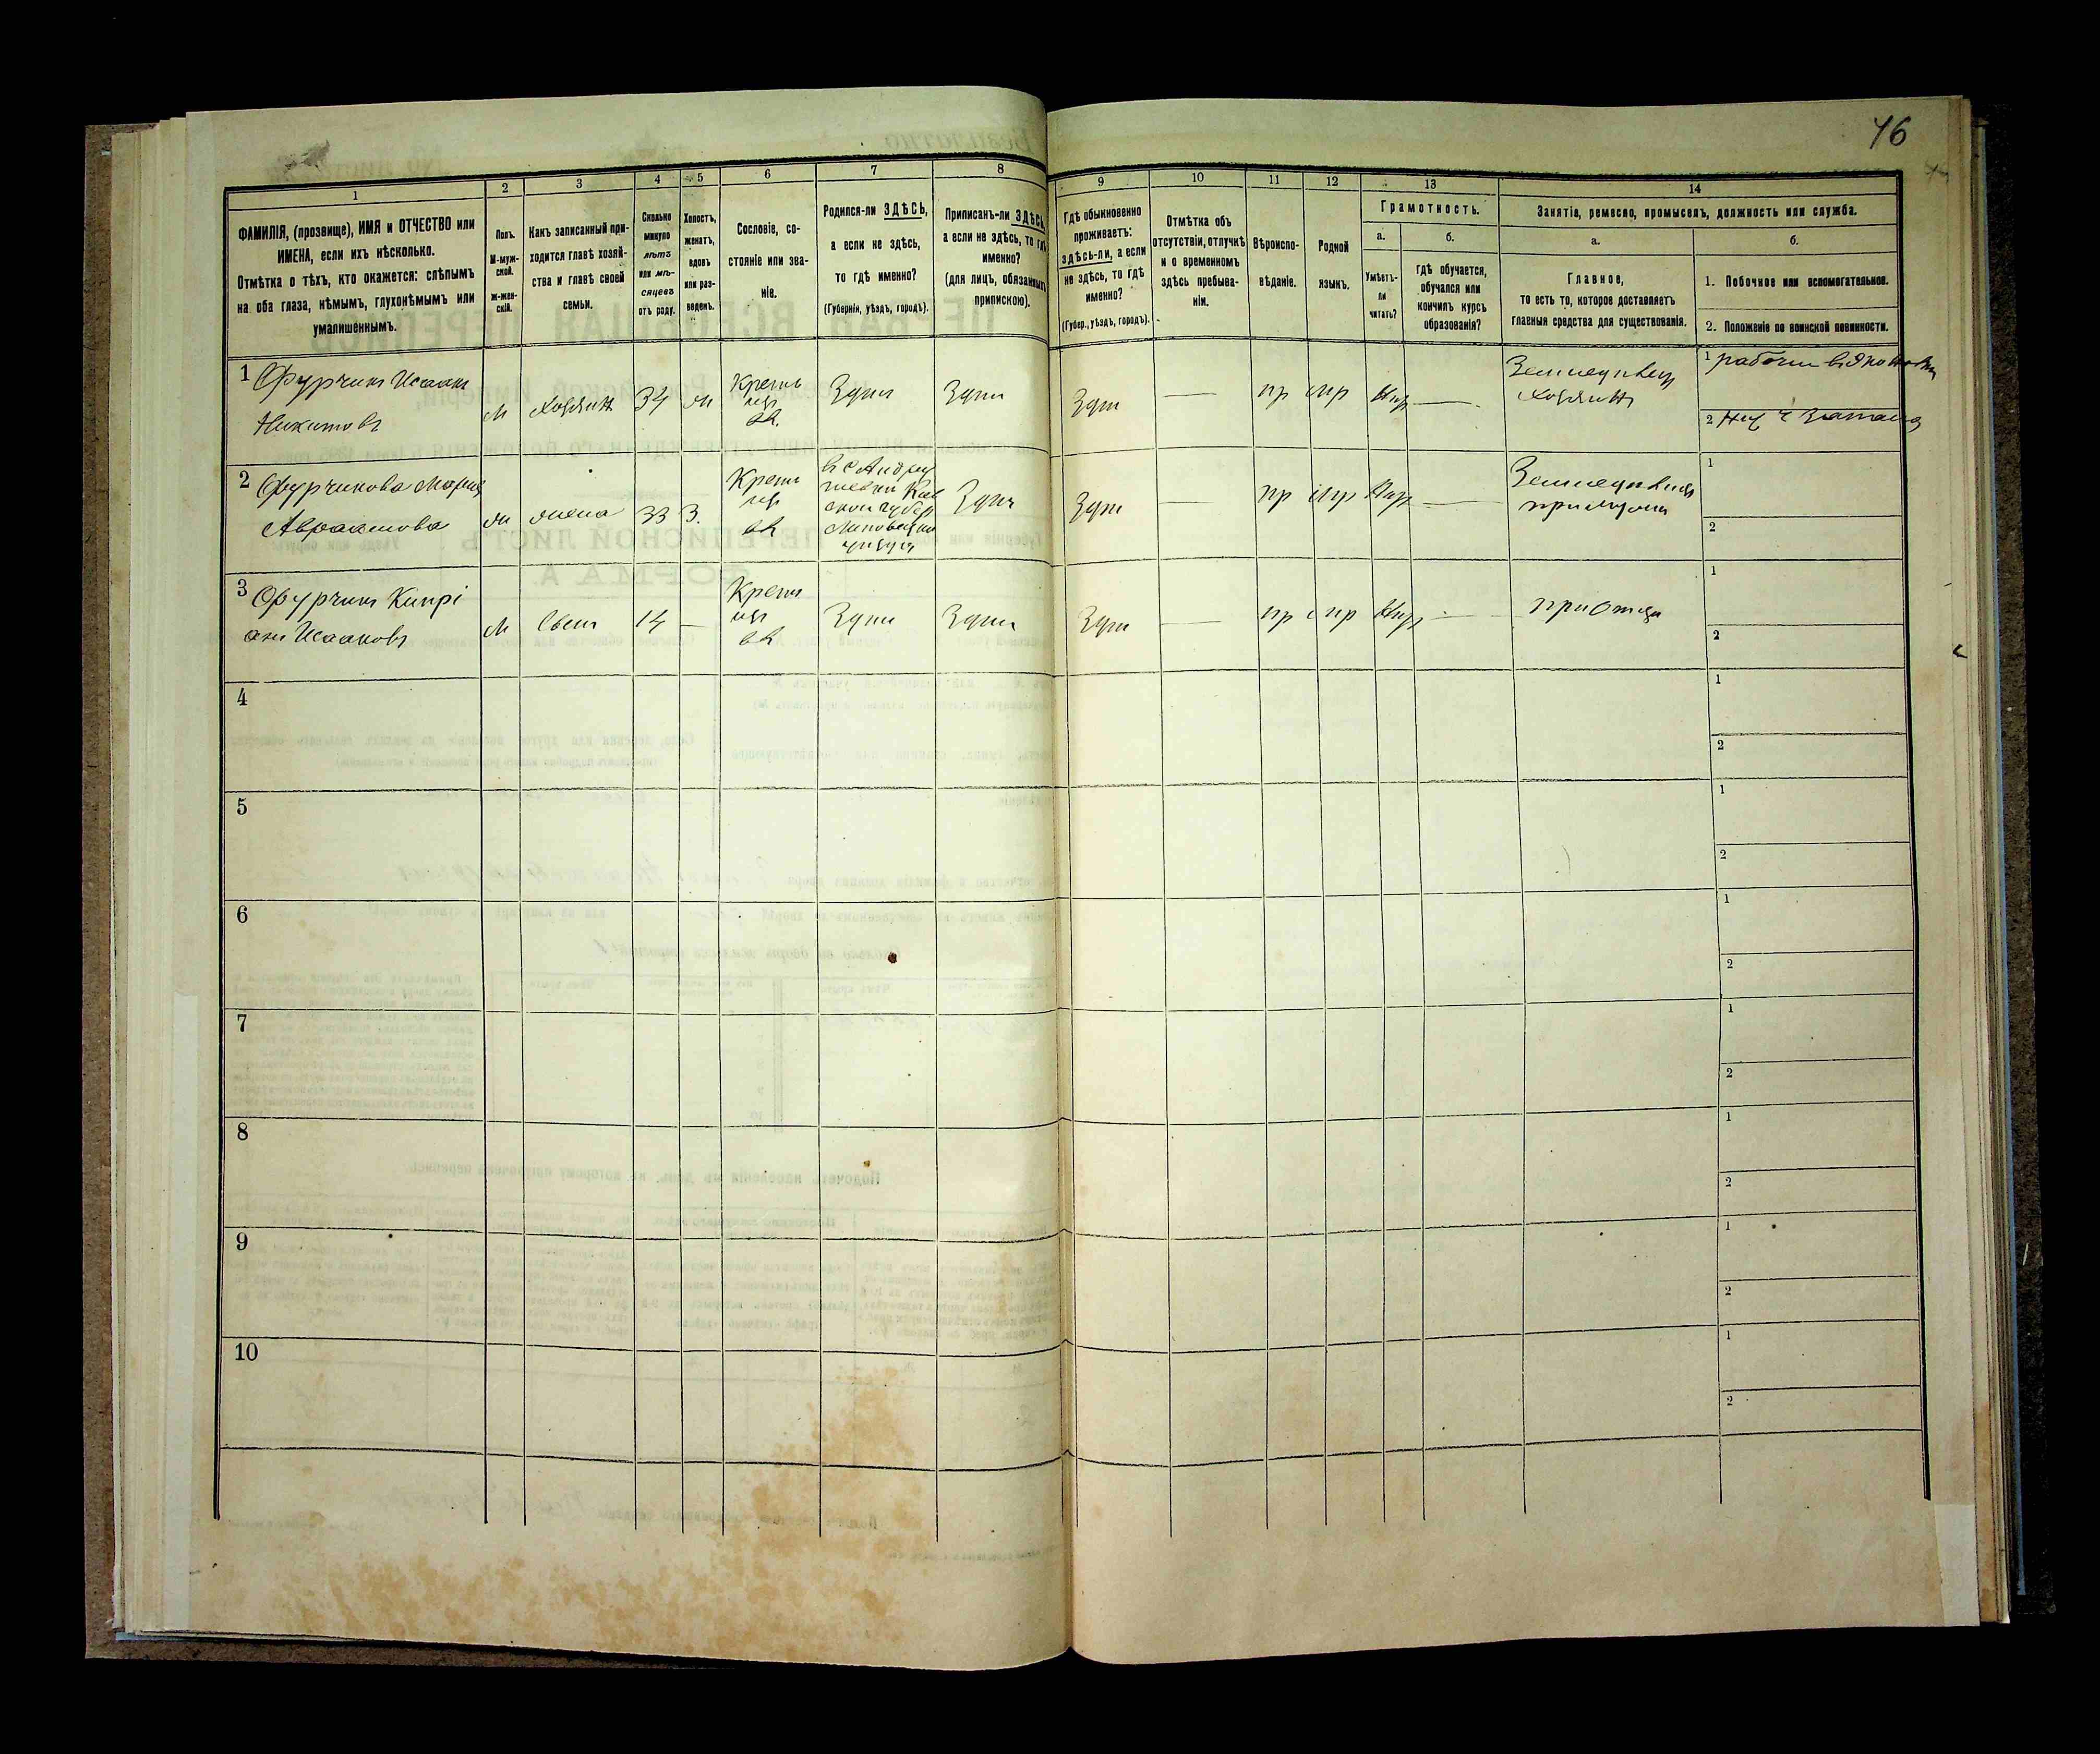 76
1
ФАМИЛІЯ, (прозвище), ИМЯ и ОТЧЕСТВО или
ИМЕНА, если ихъ нѣсколько.
Отмѣтка о тѣхъ, кто окажется: слѣпымъ
на оба глаза, нѣмымъ, глухонѣмымъ или
умалишеннымъ.
2
Полъ.
М-муж-
ской.
Ж-жен-
скій.
3
Какъ записанный при-
ходится главѣ хозяй-
ства и главѣ своей
семьи.
4
Сколько
минуло
лѣтъ
или мѣ-
сяцевъ
отъ роду.
5
Холостъ,
женатъ,
вдовъ
или раз-
веденъ.
6
Сословіе, со-
стояніе или зва-
ніе.
7
Родился-ли ЗДѢСЬ,
а если не здѣсь,
то гдѣ именно?
(Губернія, уѣздъ, городъ).
8
Приписанъ-ли ЗДѢСЬ,
а если не здѣсь, то гдѣ
именно?
(для лицъ, обязанныхъ
припискою).
9
Гдѣ обыкновенно
проживаетъ:
здѣсь-ли, а если
не здѣсь, то гдѣ
именно?
(Губер., уѣздъ, городъ).
10
Отмѣтка объ
отсутствіи, отлучкѣ
и о временномъ
здѣсь пребыва-
ніи.
11
Вѣроиспо-
вѣданіе.
12
Родной
языкъ.
13
Грамотность.
а.
Умѣетъ-
ли
читать?
б.
Гдѣ обучается,
обучался или
кончилъ курсъ
образованія?
14
Занятіе, ремесло, промыселъ, должность или служба.
а.
Главное,
то есть то, которое доставляетъ
главныя средства для существованія.
б.
1. Побочное или вспомогательное.
2. Положеніе по воинской повинности.
1 Фурчик Исаак
Никитовъ
м
хозяин
34
ж
Крест
изъ
вл.
Здѣсь
Здѣсь
Здѣсь
—
пр
мр
Нѣт
—
Земледѣлец
хозяин
1
2
2 Фурчикова Мария
Авраамова
ж
жена
33
З.
Крест
изъ
вл
Здѣсь
Здѣсь
—
пр
мр
Нѣт
—
при мужи
1
2
3 Фурчик Кипрі
ан Исааковъ
м
Сын
14
—
Крест
изъ
вл
Здѣсь
Здѣсь
Здѣсь
—
пр
мр
Нѣт
—
при отцѣ
1
2
4
1
2
5
1
2
6
1
2
7
1
2
8
1
2
9
1
2
10
1
2